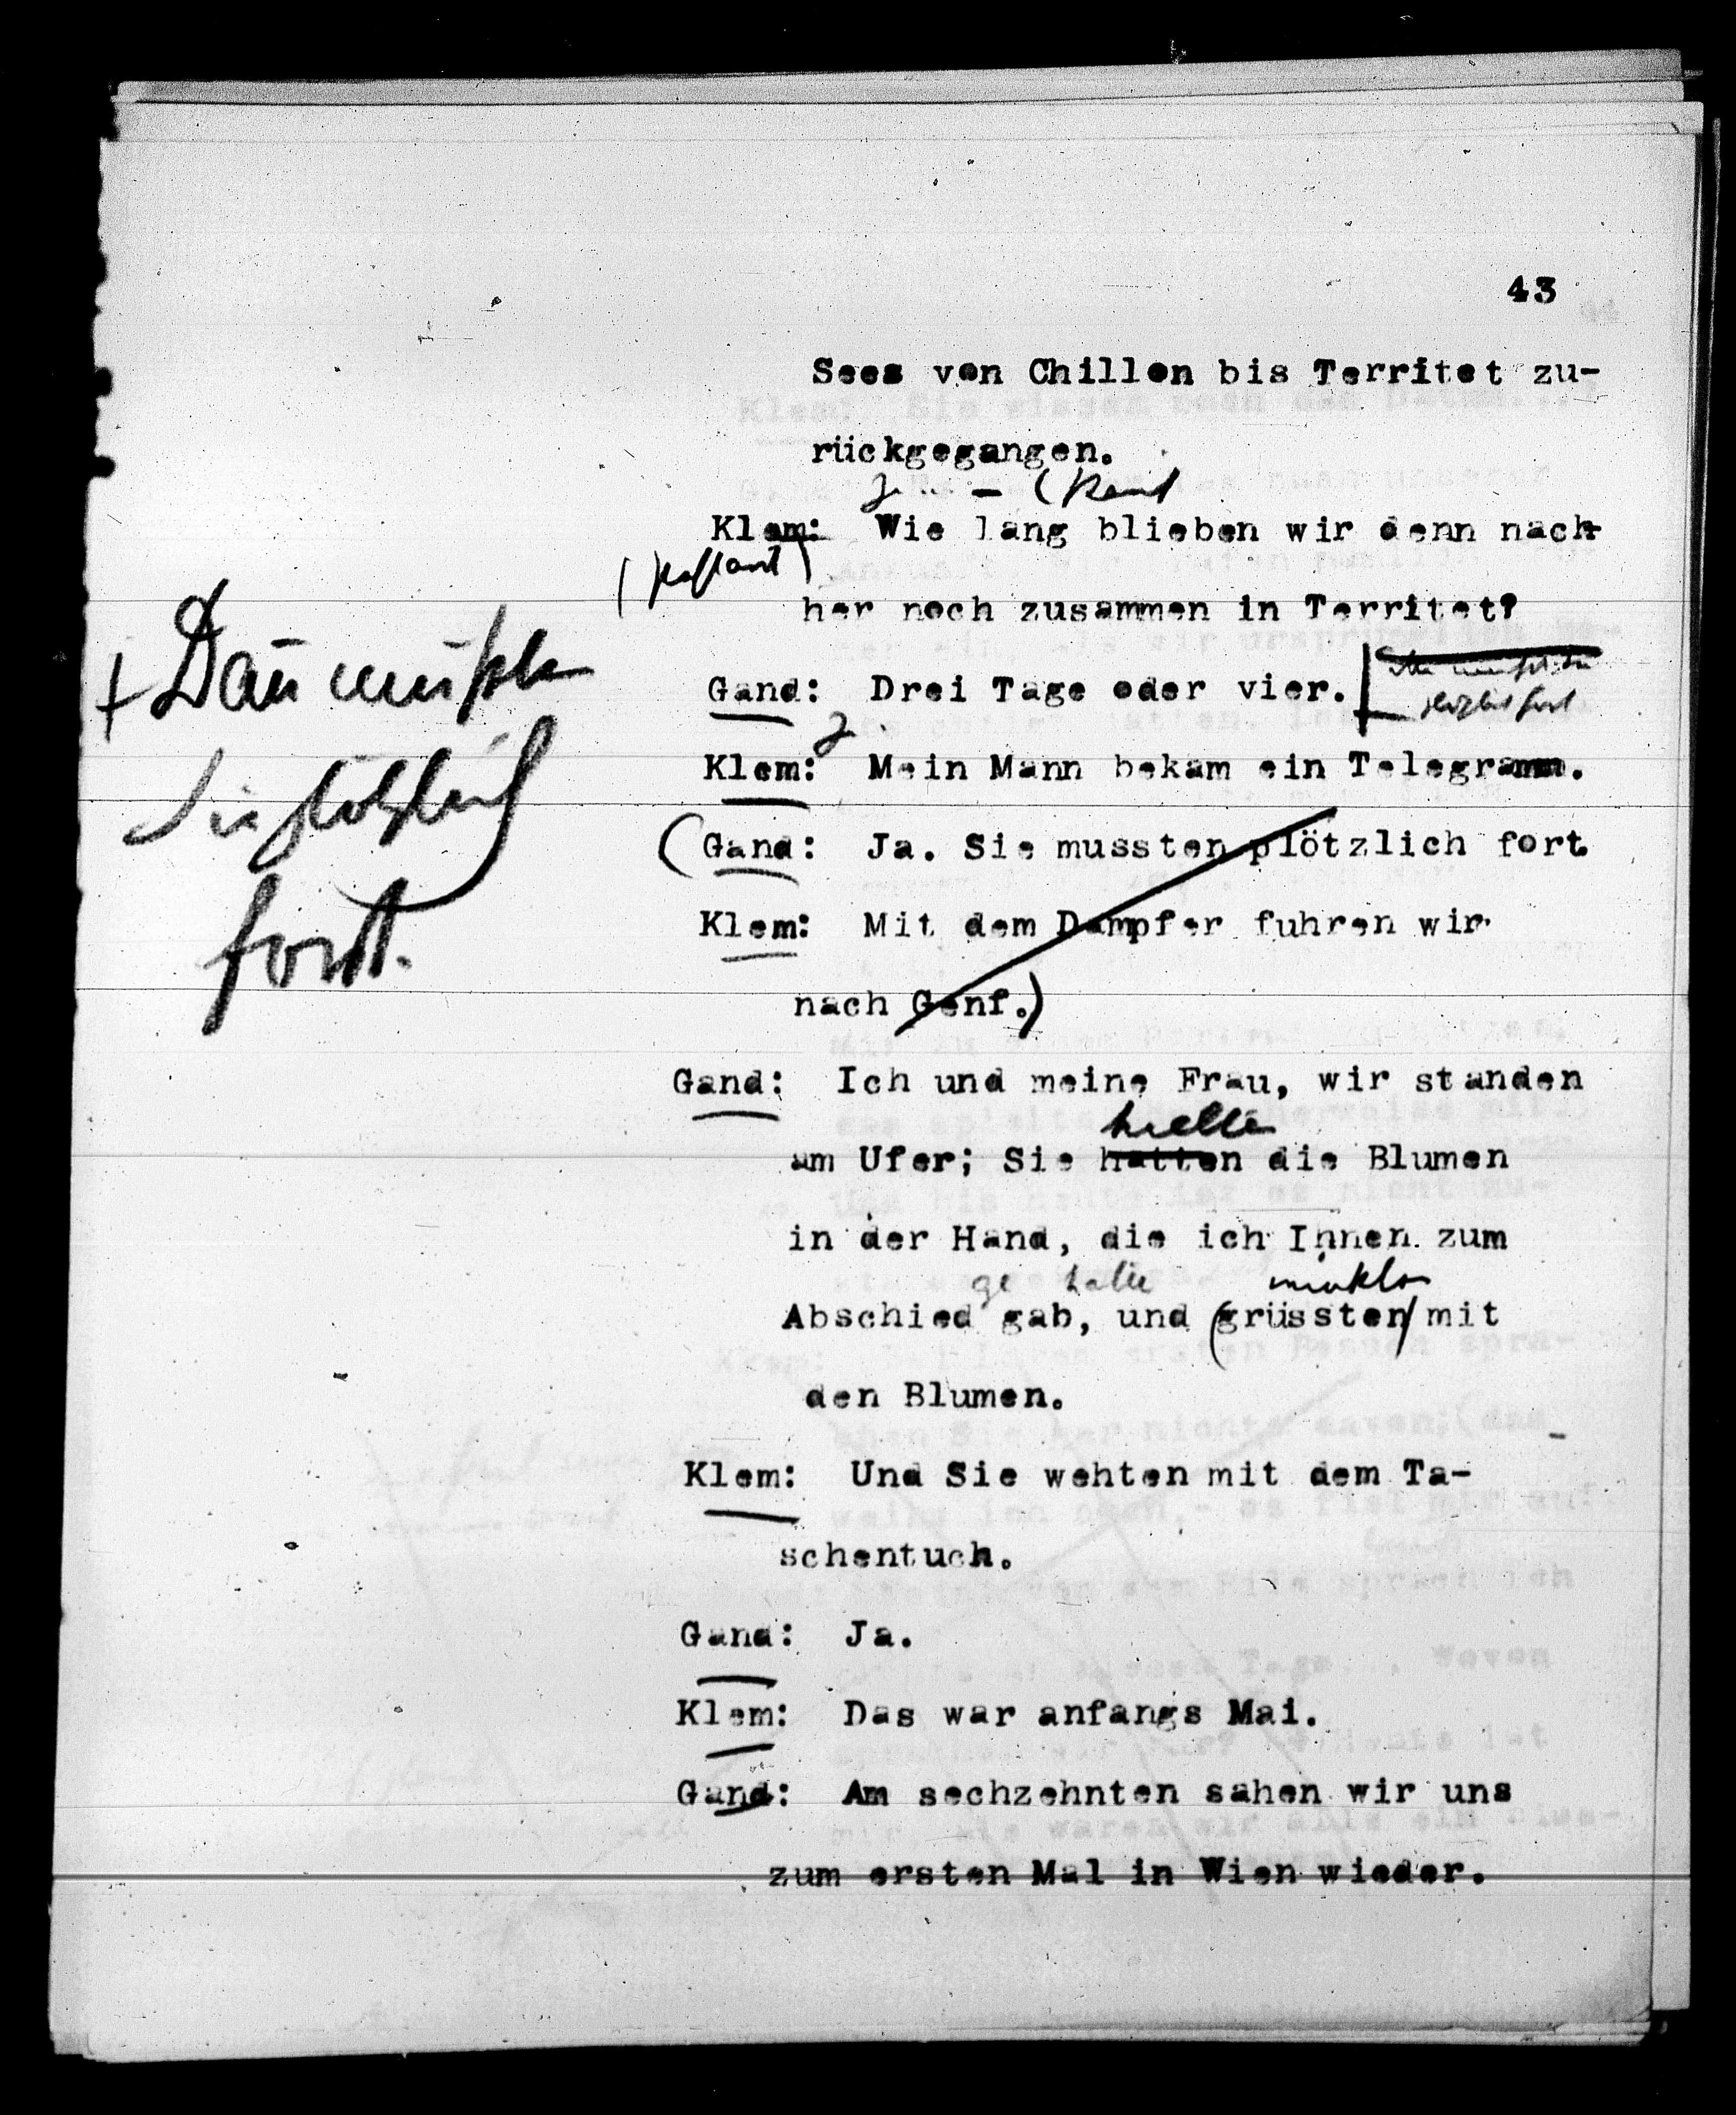 43
Sees von Chillon bis Territet zu-
rückgegangen.
Klem: Wie lang blieben wir denn nach-
her noch zusammen in Territet?
Gand: Drei Tage oder vier.
Dañ mußten
Sie plötzlich
fort.
Klem: Mein Mann bekam ein Telegramm.
(Gand: Ja. Sie mussten plötzlich fort.
Klem: Mit dem Dampfer fuhren wir
nach Genf.)
Gand: Ich und meine Frau, wir standen
hielten
am Ufer; Sie hatten die Blumen
in der Hand, die ich Ihnen zum
ge hatte winkten
Abschied gab, und (grüssten) mit
den Blumen.
Klem: Und Sie wehten mit dem Ta-
schentuch.
Gand: Ja.
Klem: Das war anfangs Mai.
Gand: Am sechzehnten sahen wir uns
zum ersten Mal in Wien wieder.